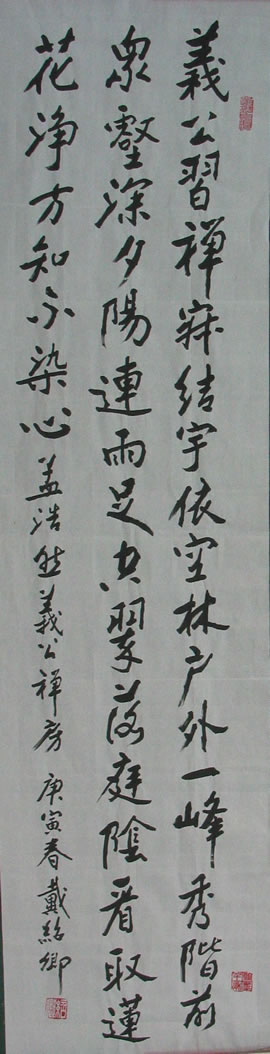 義公習禅寂結宇依空林户外一峰秀階前
衆壑深夕陽連雨足空翠落庭陰看取蓮
花净方知不染心孟浩然義公禅房 庚寅春戴紹卿